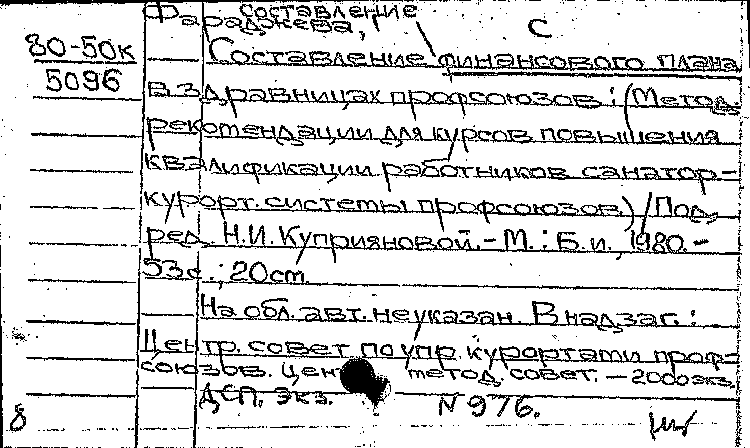 Составление
Фараджева, С
80-50к
5096
Составление финансового плана
в здравницах профсоюзов: (Метод.
рекомендации для курсов повышения
квалификации работников санатор-
курорт. системы профсоюзов) / Под
ред. Н.И. Куприяновой. - М. : Б. и., 1980. -
53с. ; 20 cm.
На обл. авт. не указан. В надзаг. :
Центр. совет по упр. курортами проф-
союзов. Цен метод. совет. - 2000 экз.
ДСП. Экз. N 976.
8